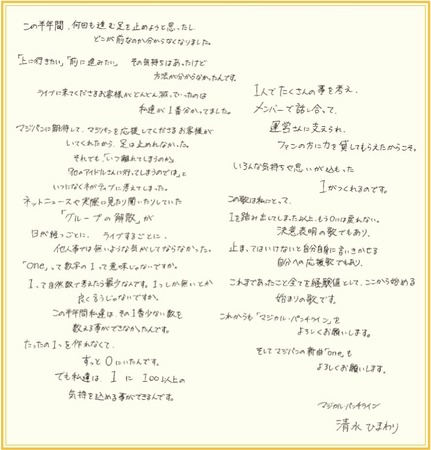 この半年間、何回も進む足を止めようと思ったし
どこが前なのか分からなくなりました。
「上に行きたい」「前に進みたい」 その気持ちはあったけど
方法が分からなかったんです。
ライブに来てくださるお客様がどんどん減っていったのは
私達が1番分かってました。
マジパンに期待して、マジパンを応援してくださるお客様が
いてくれたから、足は止めれなかった。
それでも「いつ離れてしまうのか」
「他のアイドルさんに行ってしまうのでは」と
いつになくネガティブに考えてしまった。
ネットニュースや実際に見たり聞いたりしていた
「グループの解散」が
日が経つごとに、ライブするごとに、
他人事では無いような気がしてならなかった。
「one」って数字の1って意味じゃないですか。
1って自然数で考えたら最少なんです。1つしか無いとか
良くあるじゃないですか。
この半年間私達は、その1番少ない数を
数える事ができなかったんです。
たったの1つを作れなくて、
ずっと0にいたんです。
でも私達は、1に100以上の
気持ちを込める事ができるんです。
1人でたくさんの事を考え、
メンバーで話し合って、
運営さんに支えられ、
ファンの方に力を貸してもらえたからこそ。
いろんな気持ちや思いが込もった
1がつくれるのです。
この歌は私にとって、
1を踏み出してしまった以上、もう0には戻れない。
決意表明の歌でもあり、
止まってはいけないと自分自身に言いきかせる
自分への応援歌でもあり、
これまであったこと全てを経験値として、ここから始める
始まりの歌です。
これからも「マジカル・パンチライン」を
よろしくお願いします。
そしてマジパンの新曲「one」も
よろしくお願いします。
マジカル・パンチライン
清水 ひまわり